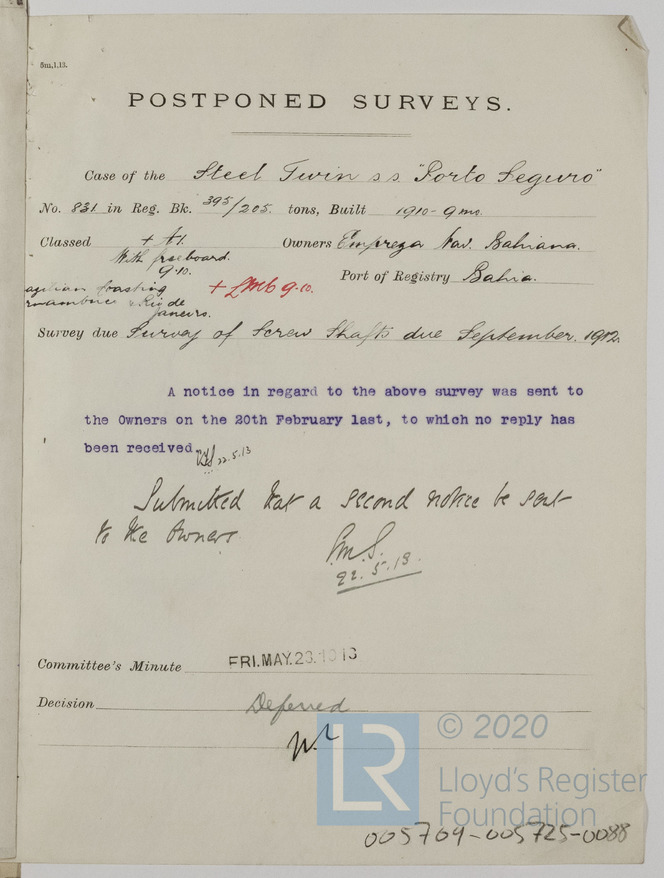 5m,1,13.
POSTPONED SURVEYS.
Case of the Steel Twin s.s. "Porto Seguro"
No. 831 in Reg. Bk. 395/205 tons, Built 1910-9mo.
Classed + A1. Owners Empreza Nav. Bahiana.
With freeboard.
9.10.
Port of Registry Bahia.
+ LMC 9.10.
azilian Coasting
rnambuco & Rio de
Janeiro.
Survey due Survey of Screw Shafts due September. 1912.
A notice in regard to the above survey was sent to
the Owners on the 20th February last, to which no reply has
been received
22.5.13
Submitted that a second notice be sent
to the Owners
22.5.13.
Committee's Minute FRI.MAY.23.1913
Decision Deferred
LR
© 2020
Lloyd's Register
Foundation
005709-005725-0088